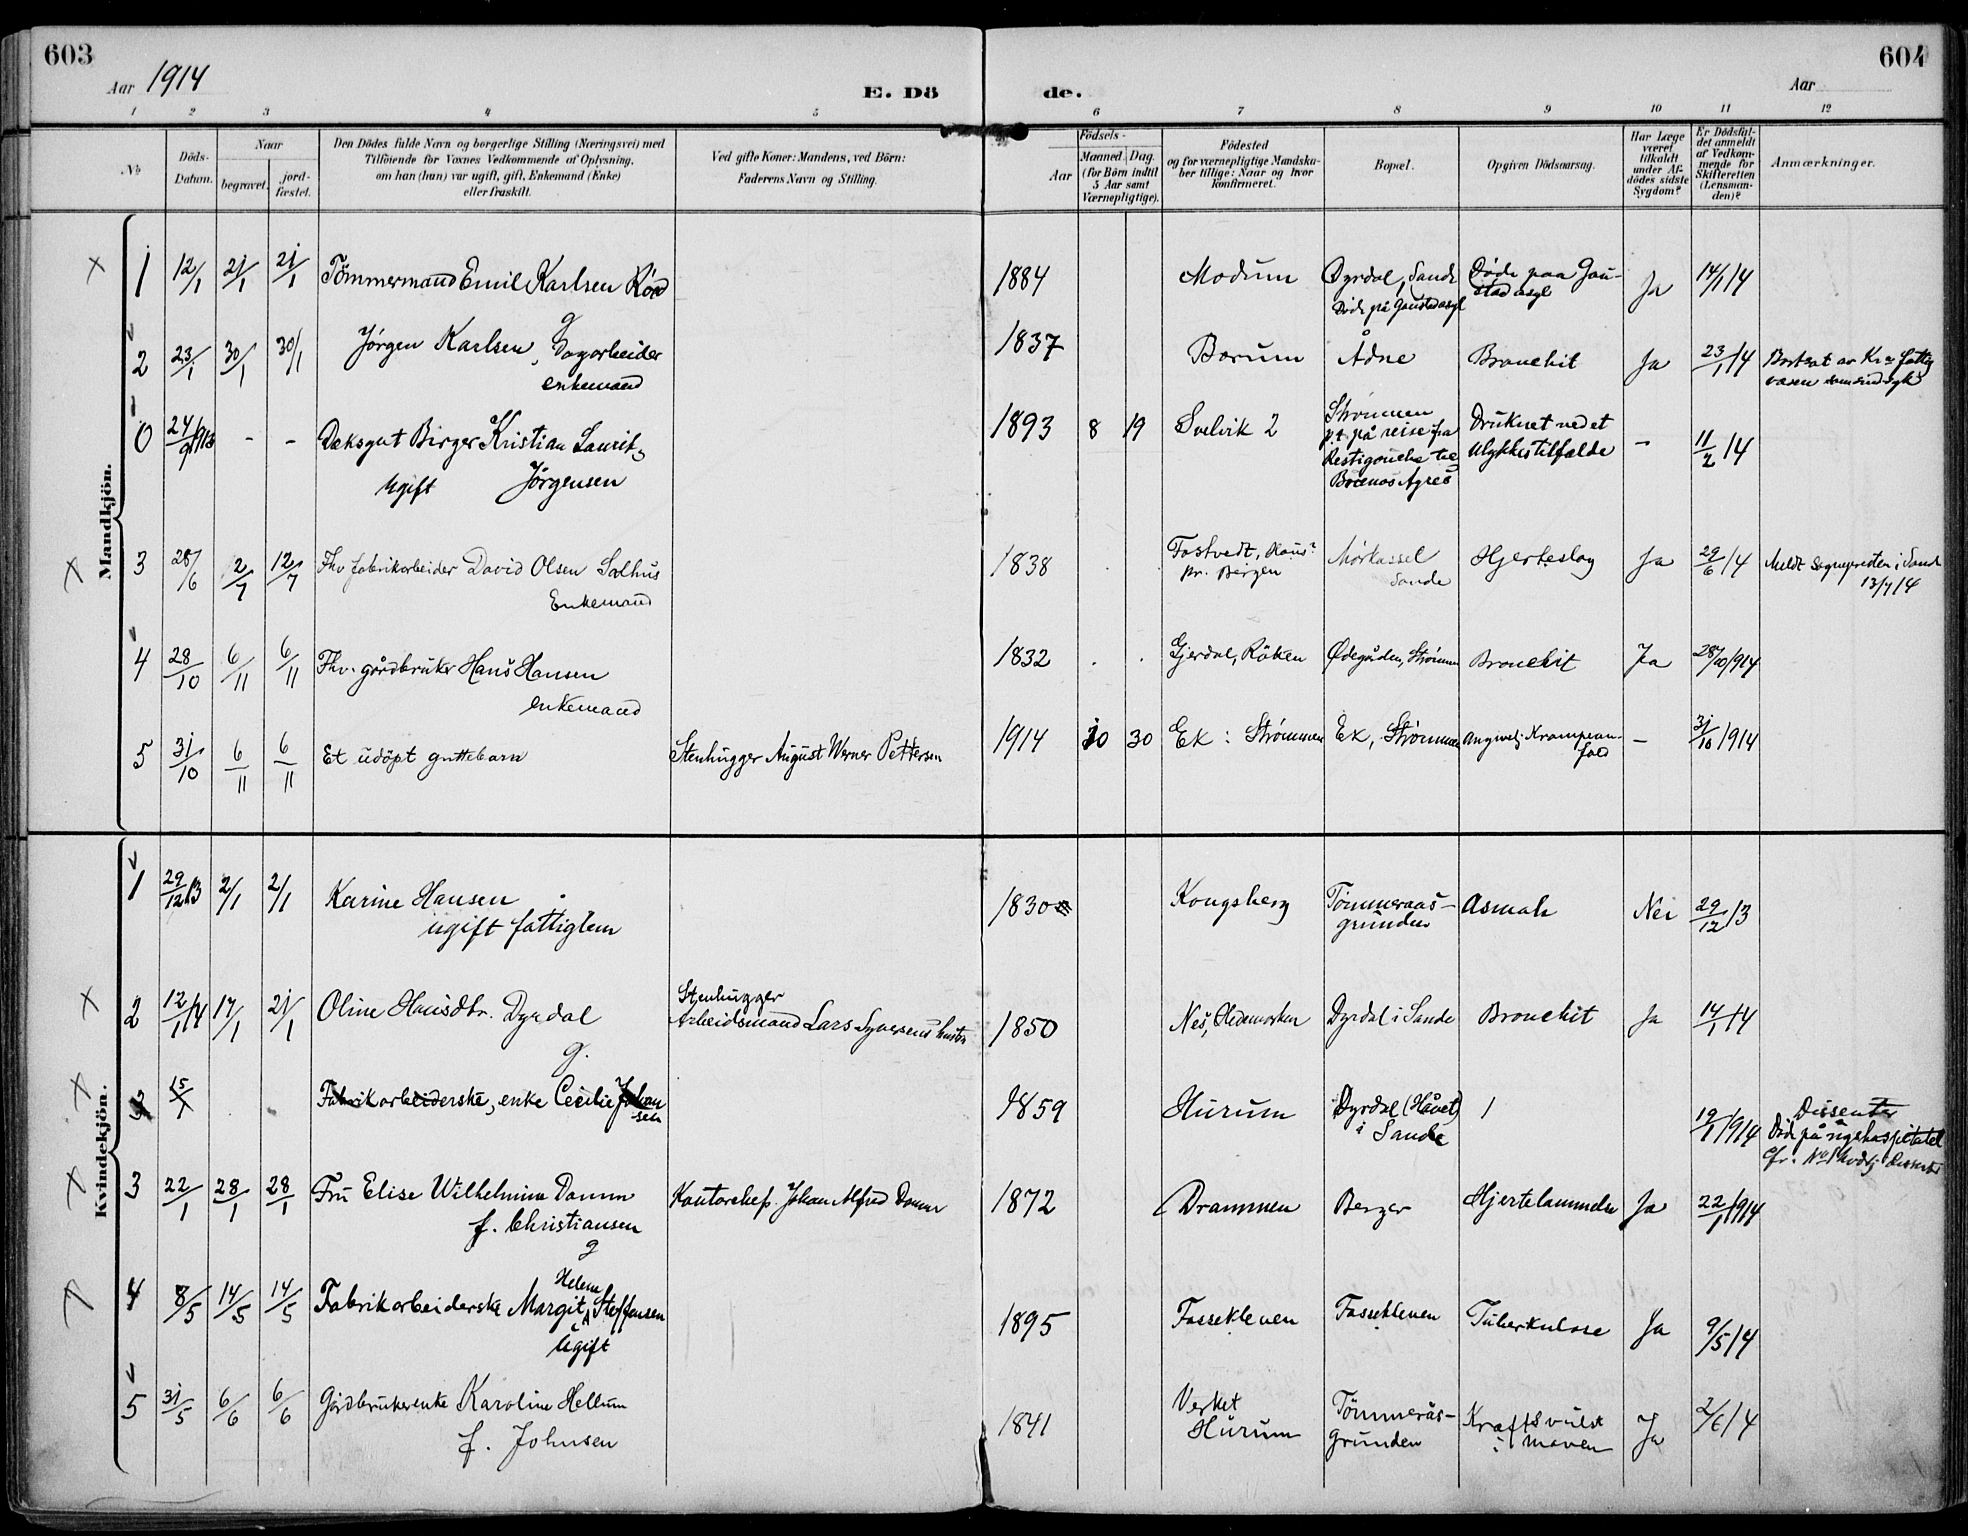 603
604
Aar 1914
E. Dö de.
Aar
1 2 3 4 5 6 7 8 9 10 11 12
No
Döds-Datum.
Naar
begravet.
jord-fæstet.
Den Dödes fulde Navn og borgerlige Stilling (Næringsvei) med
Tilföiende for Voxnes Vedkommende af Oplysning,
om han (hun) var ugift, gift, Enkemand (Enke)
eller fraskilt.
Ved gifte Koner: Mandens, ved Börn:
Faderens Navn og Stilling.
Födsels-
Aar
Maaned. Dag.
(for Börn indtil
5 Aar samt
Værnepligtige).
Födested
og for værnepligtige Mandska-
ber tillige: Naar og hvor
konfirmeret.
Bopæl.
Opgiven Dödsaarsag.
Har Læge
været
tilkaldt
under Af-
dödes sidste
Sygdom?
Er Dödsfal-
det anmeldt
af Vedkom-
mende for
Skifteretten
(Lensman-
den)?
Anmærkninger.
Mandkjön.
1 12/1 21/1 21/1 Tömmermand Emil Karlsen 1884 Modum Dyrdal, Sande Døde paa Gau- Ja 14/1 14
g Død på Gaustad asyl stad asyl
2 23/1 30/1 30/1 Jørgen Karlsen, Sagarbeider 1837 Bærum Ådne Bronchit Ja 23/1 14 Bortsat av Kra fattig
enkemand væsen som sindssyk
0 24/9 1913 - - Dæksgut Birger Kristian Laurits 1893 8 19 Svelvik 2 Strømmen Druknet ved et - 11/2 14
Ugift Jørgensen p.t. på reise fra ulykkestilfælde
Restigouche til
Buenos Ayres
3 28/6 2/7 12/7 Fhv fabrikarbeider David Olsen Solhus 1838 Tostvedt, Haus? Mørkassel Hjerteslag Ja 29/6 14 Meldt sognepresten i Sande
Enkemand pr. Bergen Sande 13/7 14
4 28/10 6/11 6/11 Fhv. gårdbruker Hans Hansen 1832 . . Gjerdal, Röken Ødegården, Strømm Bronchit Ja 28/10 1914
enkemand
5 31/10 6/11 6/11 Et udöpt guttebarn Stenhugger August Werner Pettersen 1914 10 30 Ek: Strømmen Ek, Strømmen angivelj. Krampean- - 31/10 1914
fald
Kvindekjön.
1 29/12 13 2/1 2/1 Karine Hansen 1830 Kongsberg Tømmeraas- Asmah Nei 29/12 13
ugift fattiglem grunden
2 12/1 14 17/1 21/1 Oline Hansdtr. Dyrdal Stenhugger
g. Arbeidsmand Lars Syversens hustru 1850 Nes, Hedemarken Dyrdal i Sande Bronchit Ja 14/1 14
3 15/1 Fabrikarbeiderske, enke Cecilie Johan 1859 Hurum Dyrdal (Håvet) 19/1 1914 Dissenter
sen i Sande Død på rigshospitalet
cfr. No 1 Dissent
3 22/1 28/1 28/1 Fru Elise Wilhelmine Damm Kontorchef Johan Alfred Damm 1872 Drammen Berger Hjertelammelse Ja 22/1 1914
f. Christiansen
g
4 8/5 14/5 14/5 Fabrikarbeiderske Margit Helene Steffensen 1895 Fossekleven Fossekleven Tuberkulose Ja 9/5 14
Ugift
5 31/5 6/6 6/6 Gårdbrukerenke Karoline Hellum 1841 Verket Tömmerås- Kræftsvulst Ja 2/6 14
f. Johnsen Hurum grunden i maven